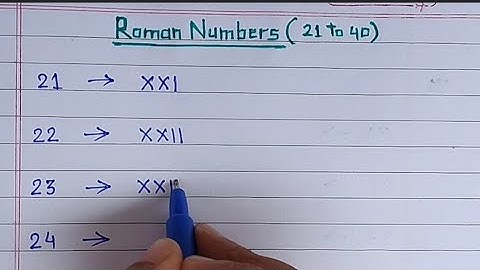 Roman Numbers (21 to 40)
21 → XXI
22 → XXII
23 → XXI
24 →